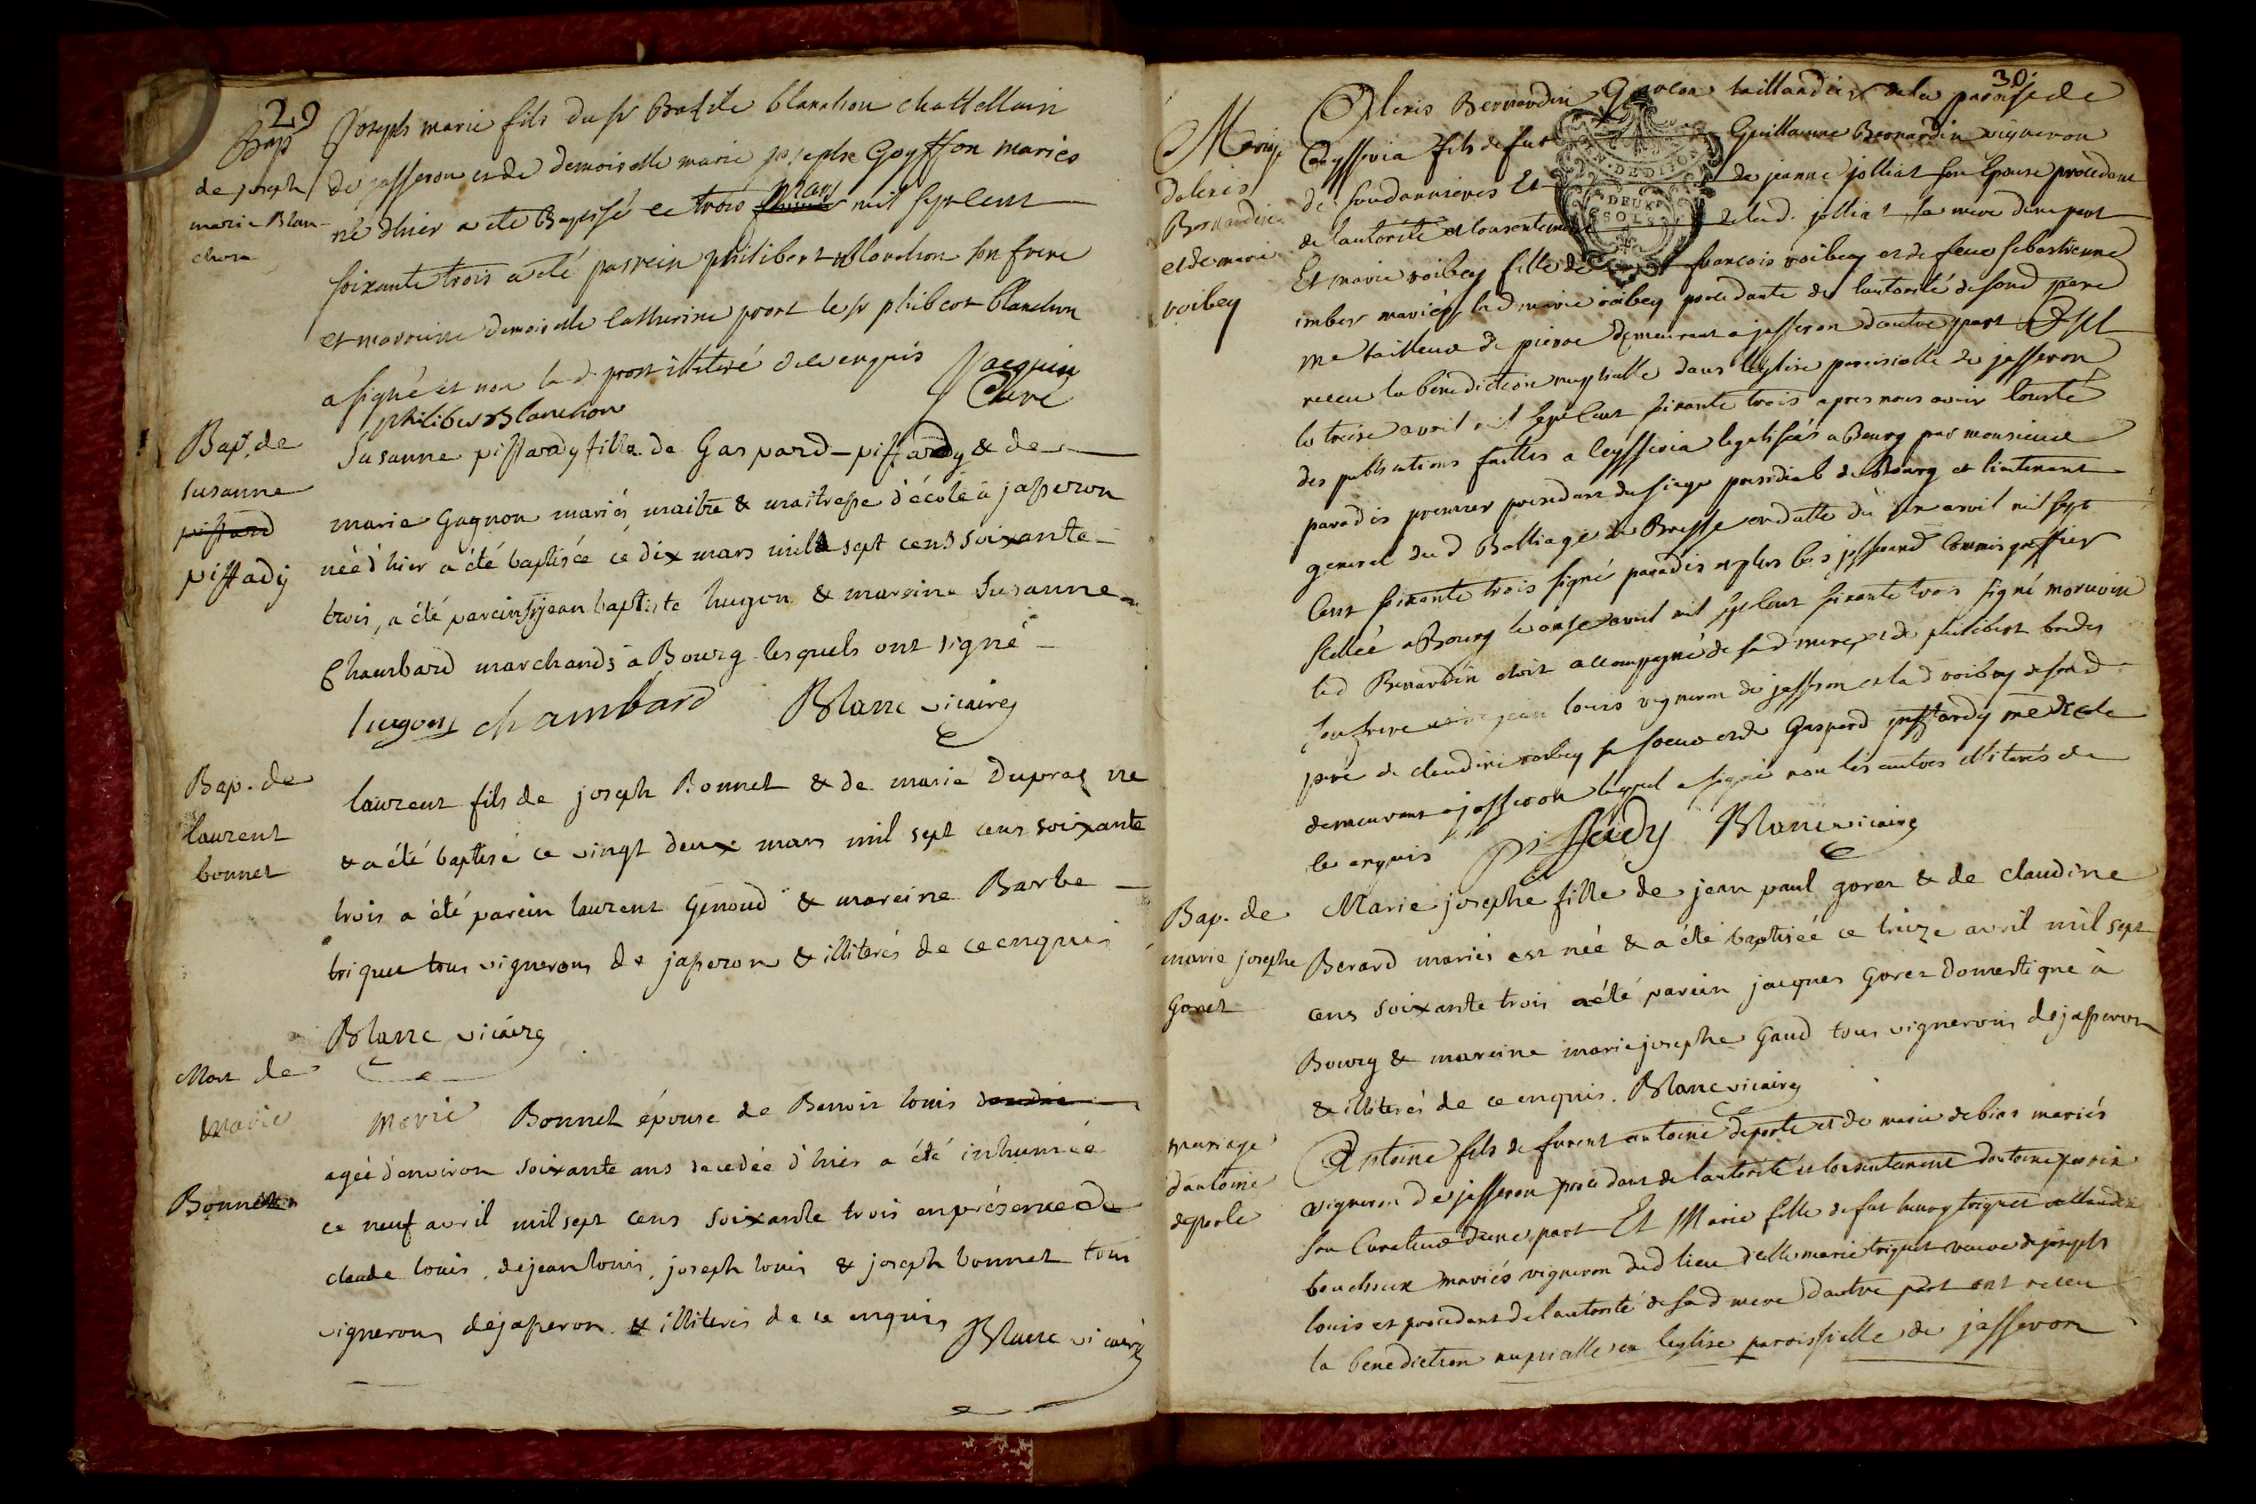 29
Bap
de joseph
marie Blan-
chon
Joseph marie fils du sr Basile blanchon chattellain
de jasseron et de demoiselle marie josephe Goyffon mariés
né dhier a eté Baptisé ce trois mars mil sept cent
soixante trois a eté parrein philibert Blanchon son frere
et marreine demoiselle Catherine prost le sr philibert blanchon
a signé et non la d. prost illiteré de ce enquis Jacquin
Curé
philibert Blanchon
Bap. de
susanne
piffard
piffady
Susanne piffardy fille de Gaspard piffardy & de
marie Gagnon mariés maitre & maitresse d'école à jasseron
née d'hier a été baptisée ce dix mars mille sept cens soixante
trois, a été parein sr jean baptiste hugon & mareine Susanne
Chambard marchands à Bourg lesquels ont signé
hugon chambard Blanc vicaire
Bap. de
laurent
bonnet
laurent fils de joseph Bonnet & de marie Dupraz né
& a été baptisé ce vingt deux mars mil sept cens soixante
trois a été parein laurent Genoud & mareine Barbe
triquet tous vignerons de jasseron & illiterés de ce enquis
Blanc vicaire
Mort de
Marie
Bonnet
Marie Bonnet épouse de Benoit louis
agée d'environ soixante ans decedée d'hier a été inhumée
ce neuf avril mil sept cens soixante trois en présence de
claude louis, de jean louis, joseph louis & joseph bonnet tous
vignerons de jasseron & illiterés de ce enquis Blanc vicaire
30
Mariage
dalexis
Bernardin
et de marie
voibey
Alexis Bernardin Garçon taillandier de la paroisse de
Ceyssria fils de fut Guillaume Bernardin vigneron
de soudannieres Et de jeanne jolliat son Epouse procedant
de lautorité et consentement de lad. jolliat sa mere dune part
Et marie voibey fille de francois voibey et de feue sebastienne
imbert mariés lad marie voibey procedante de lautorité de sond pere
me tailleur de pierre demeurant a jasseron dautre part
receu la benediction nuptialle dans leglise paroissialle de jasseron
le treise avril mil sept cent soixante trois apres nous avoir
des publications faittes a Ceyssria legalisées a Bourg par monsieur
paradis premier president du siege presidial de Bourg et lieutenant
general dud Balliage de Bresse en datte du avril mil sept
cent soixante trois signé paradis et plus bas commis greffier
scellée a Bourg le onse avril mil sept cent soixante trois signé
led Bernardin etoit accompagné de sad mere, et de philibert
son frere jean louis vigneron de jasseron et lad voibey de sond
pere de claudine voibey sa soeur et de Gaspard piffardy me de
demeurant a jasseron lequel a signé non les autres illiterés de
ce enquis piffady Blanc vicaire
Bap. de
marie josephe
Goret
Marie josephe fille de jean paul goret & de claudine
Berard mariés est née & a été baptisée ce treize avril mil sept
cens soixante trois a été parein jacques Goret domestique à
Bourg & mareine marie josephe Gaud tous vignerons de jasseron
& illiterés de ce enquis. Blanc vicaire
Mariage
dantoine
deporte
Antoine fils de furent antoine deporte et de marie debias mariés
vigneron de jasseron procedant de lautorité et consentement dantoine perrin
son Curateur dune part Et Marie fille de fut henry triquet
mariés vigneron dud lieu delle marie triquet veuve de joseph
louis et procedant de lautorité de sad mere dautre part ont receu
la benediction nuptialle en leglise paroissielle de jasseron
DEUX
SOLS